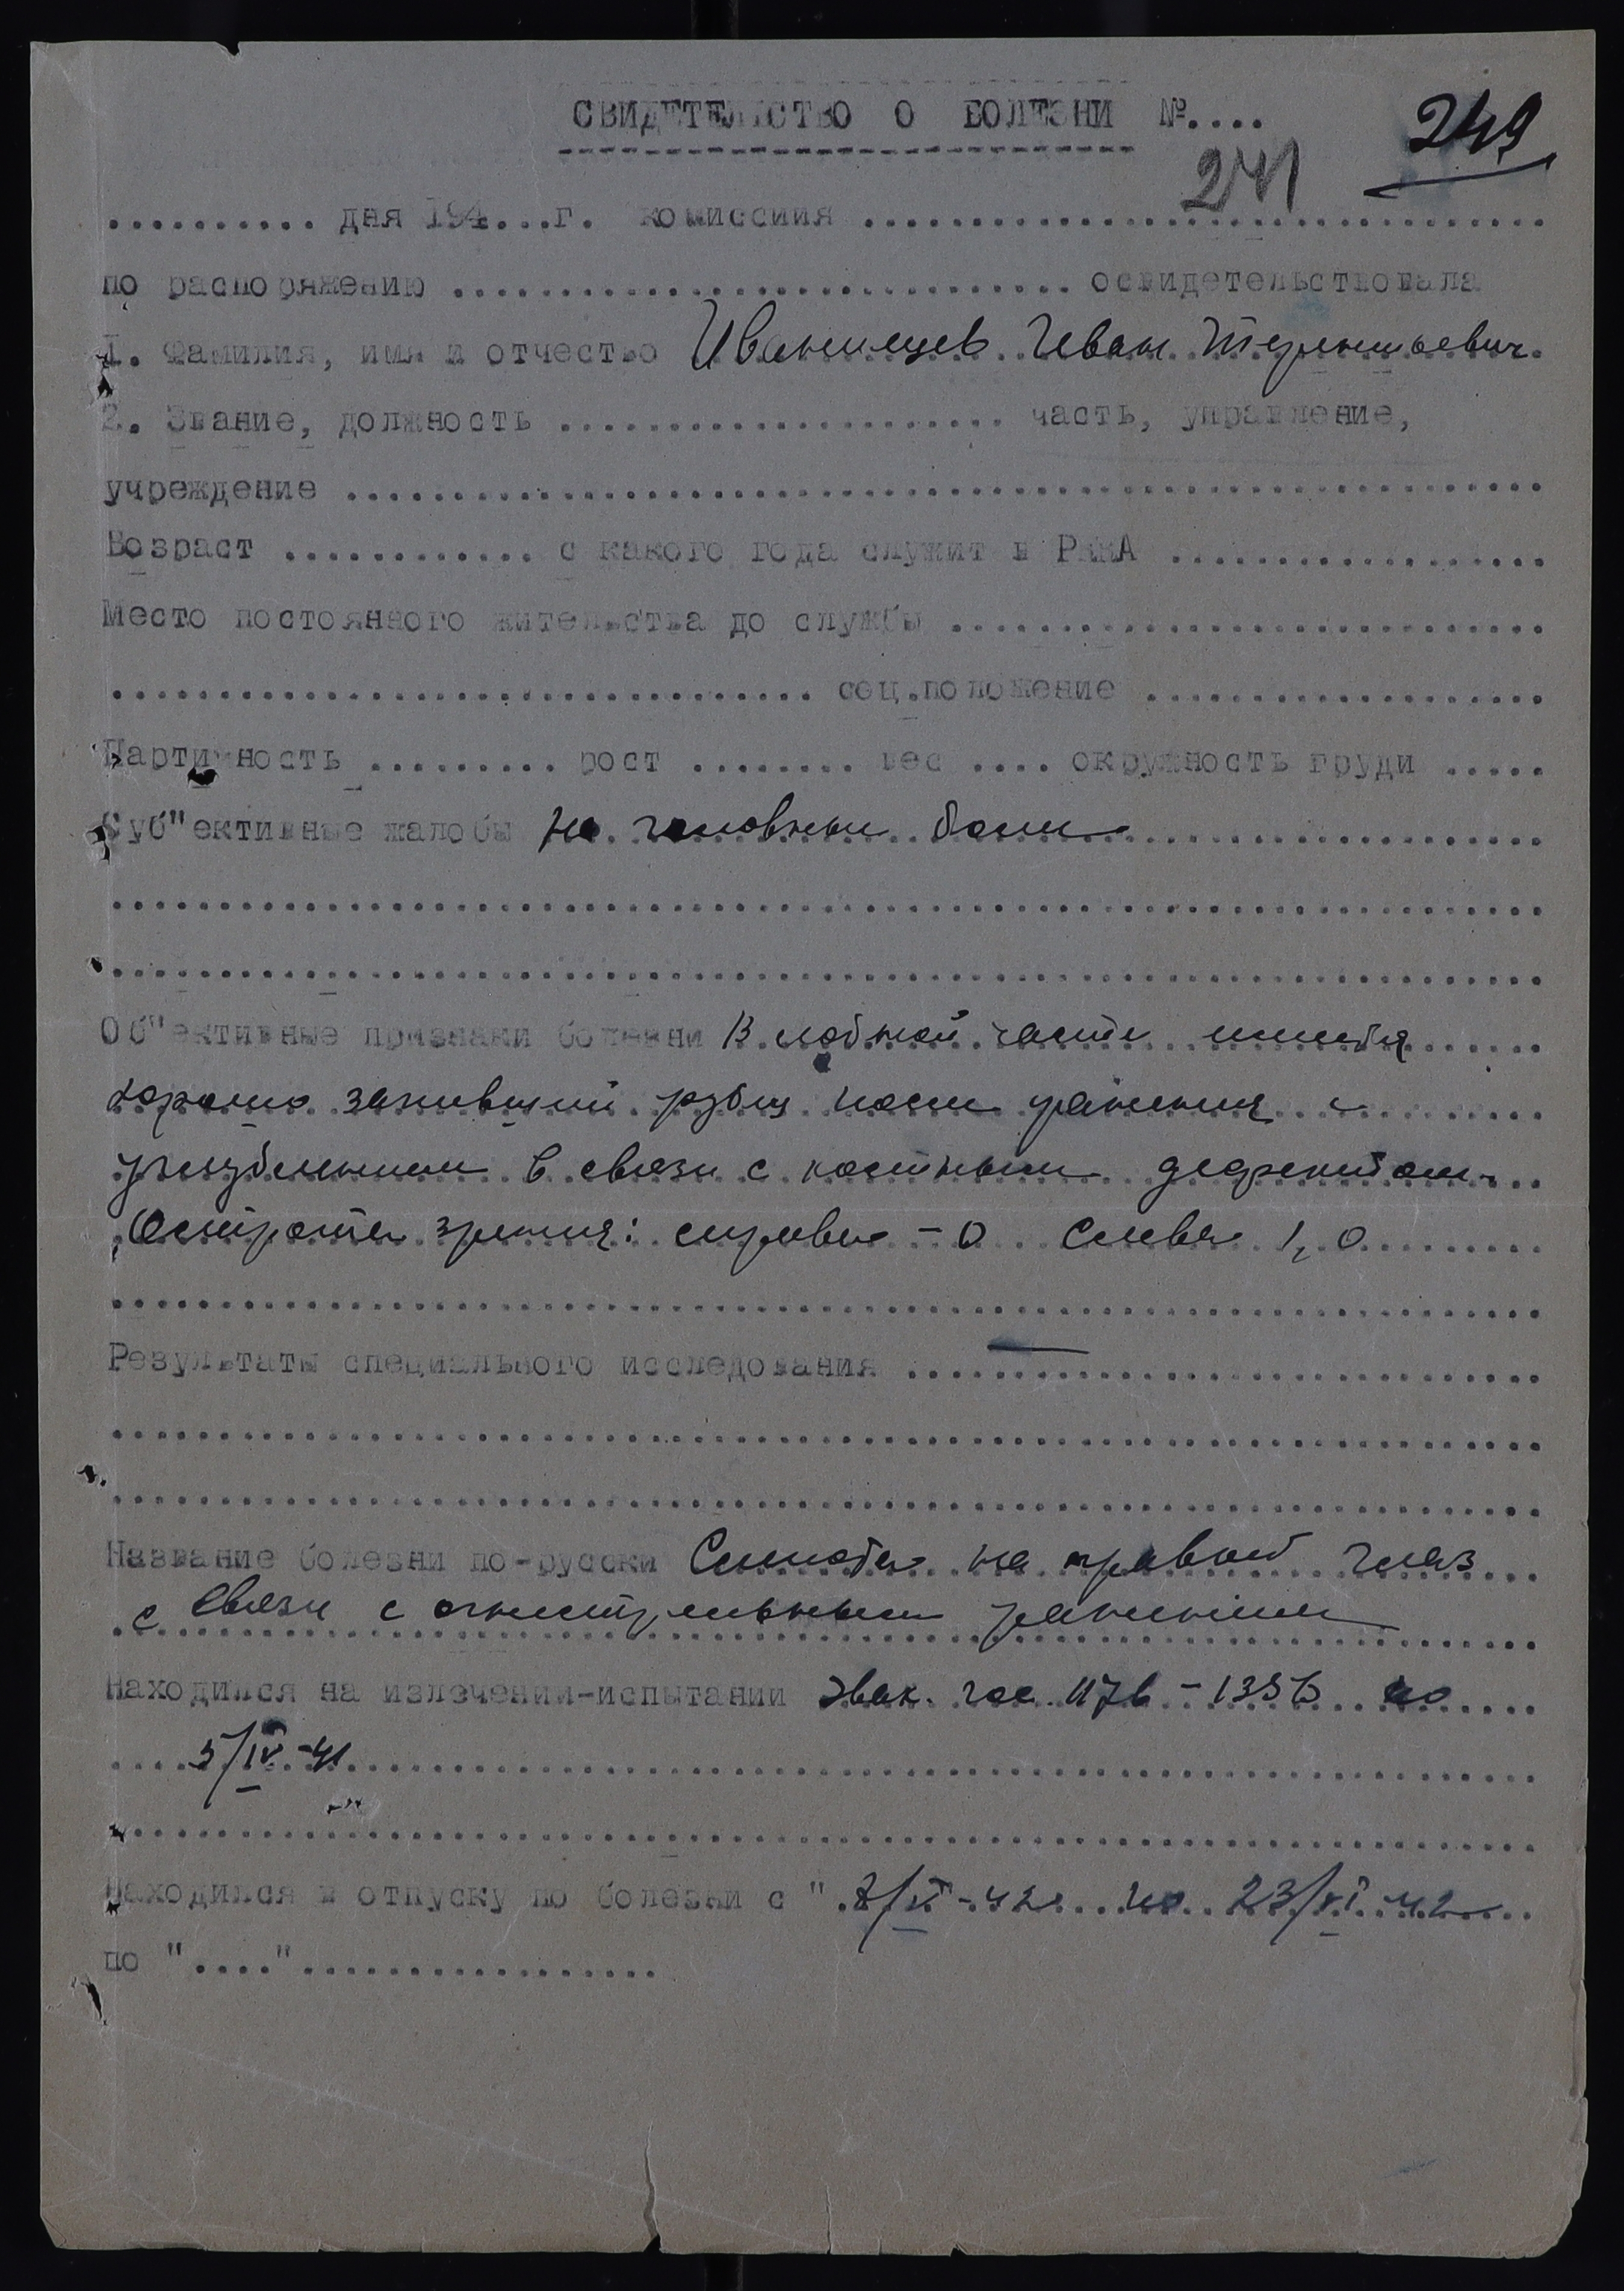 СВИДЕТЕЛЬСТВО О БОЛЕЗНИ №....
249
241
.......... дня 194....г. комиссиия ................................
по распоряжению ............................. освидетельствовала
1. Фамилия, имя и отчество Иванищев Иван Терентьевич
2. Звание, должность ..................... часть, управление,
учреждение ........................................................
Возраст ............ с какого года служит в РККА ..................
Место постоянного жительства до службы ............................
................................. соц.положение ...................
Партийность ......... рост ........ вес .... окружность груди .....
Суб"ективные жалобы на головные боли
Об"ективные признаки болезни В лобной части имеется
хорошо заживший рубец после ранения с
углублением в связи с костным дефектом.
Острота зрения: справа - 0 Слева 1,0
Результаты специального исследования ..............................
Название болезни по-русски Слепота на правый глаз
с связи с огнестрельным ранением
Находился на излечении-испытании эвак. гос. 1176 - 1356 по
5/IV-41
Находился в отпуску по болезни с " 7/VI-42 по 23/VI-42
по "...."..................